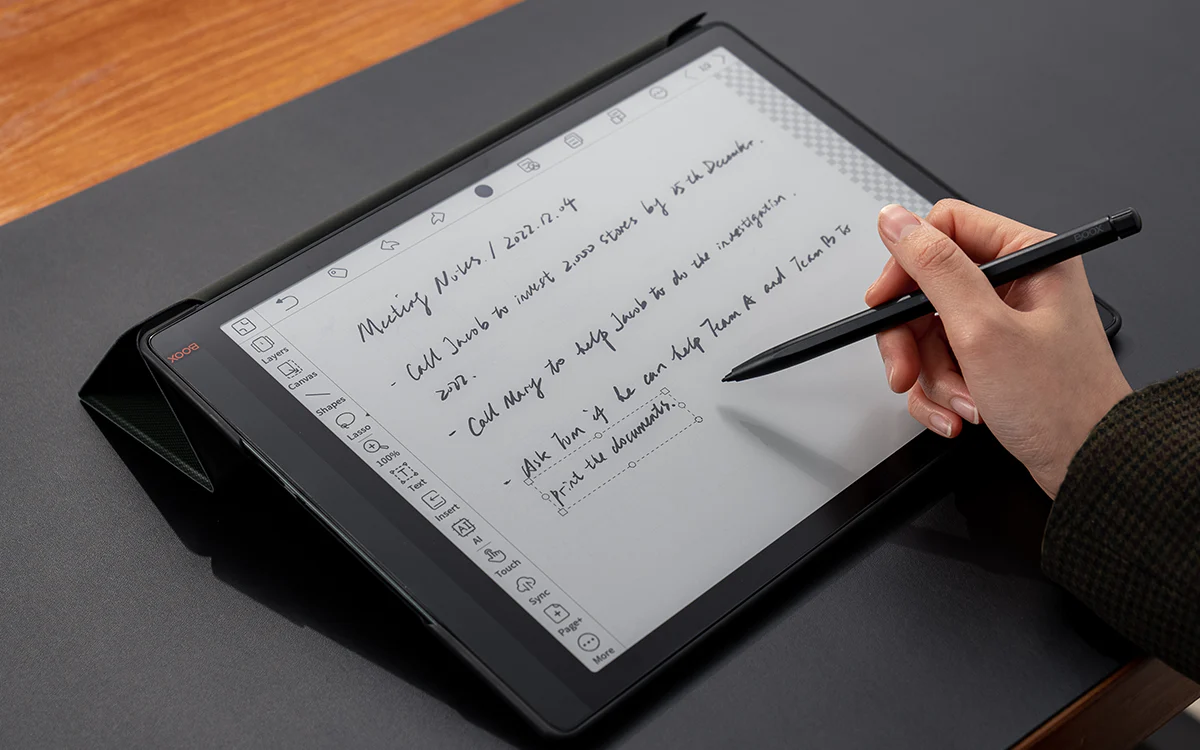 BOOX
Layers
Canvas
Shapes
Lasso
100%
Text
Insert
AI
Touch
Sync
Page+
More
Meeting Notes / 2022.12.04
- Call Jacob to invest 2,000 stores by 15th December.
2022.
- Call Mary to help Jacob to do the investigation.
- Ask Tom if he can help Team A and Team B to
print the documents.
BOOX